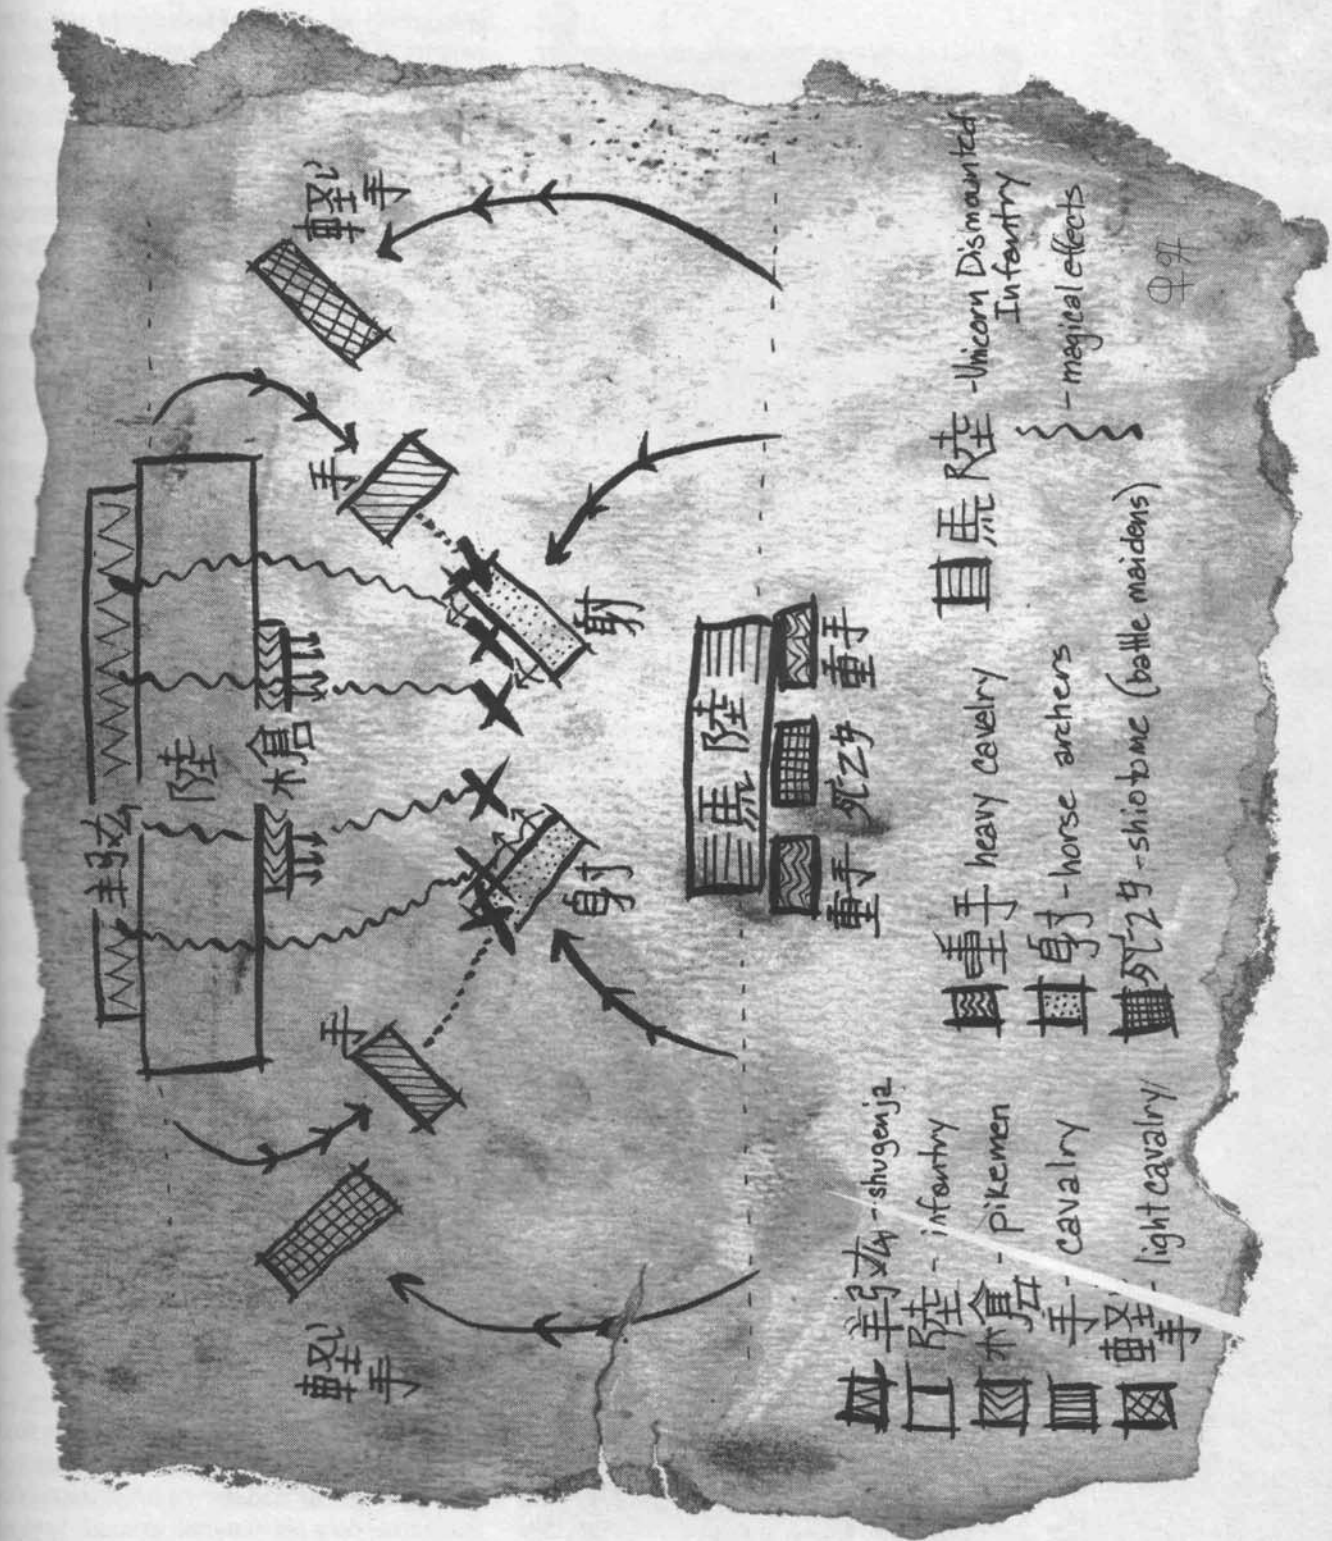 陸
槍
軽手
手
手
軽手
射
射
馬陸
重手
死乙女
重手
- shugenja
陸 - infantry
槍 - pikemen
手 - cavalry
軽手 - light cavalry
重手 heavy cavelry
射 - horse archers
死乙女 - shiotome (battle maidens)
馬陸 - Unicorn Dismounted
Infantry
- magical effects